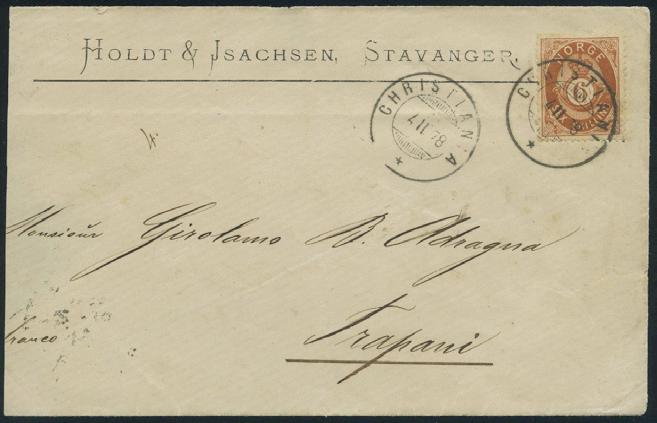 HOLDT & ISACHSEN, STAVANGER.
NORGE
6
CHRISTIANIA
4 II 78
CHRISTIANIA
4 II 78
Monsieur Girolamo B. Adragna
Franco
Trapani